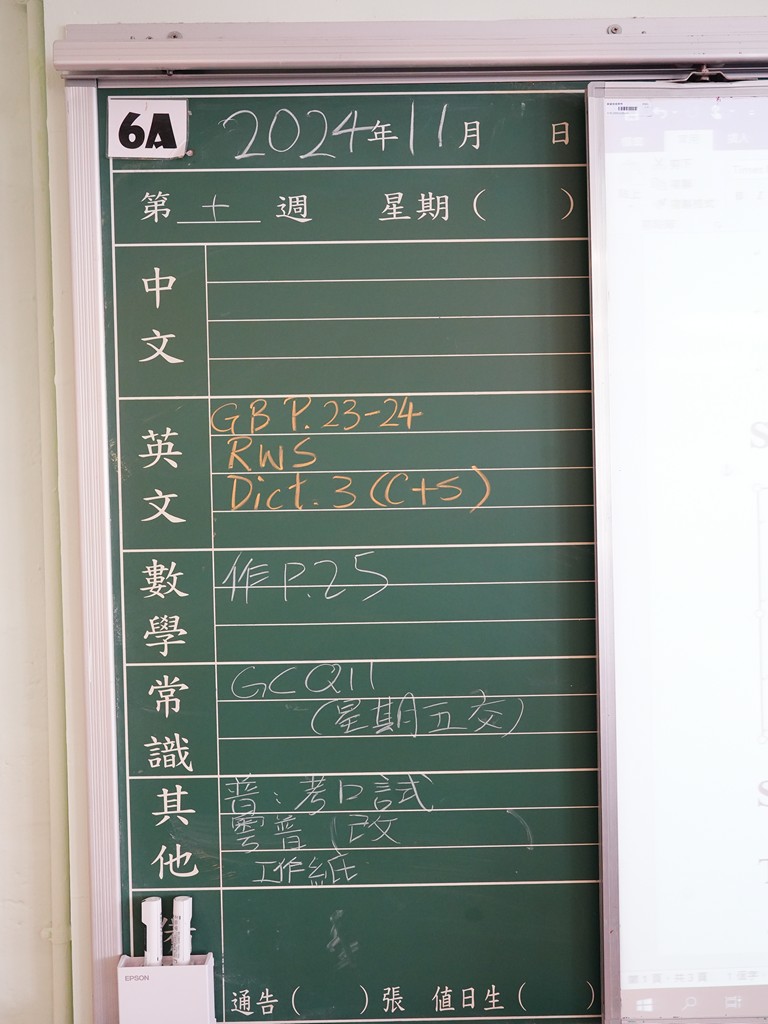 6A
2024年11月 日
第 十 週 星期( )
中文
英文
GB P.23-24
RWS
Dict. 3 (C+S)
數學
作P.25
常識
GCQ11
(星期五交)
其他
普：考口試
雲普(改 )
工作紙
EPSON
通告( )張 值日生( )